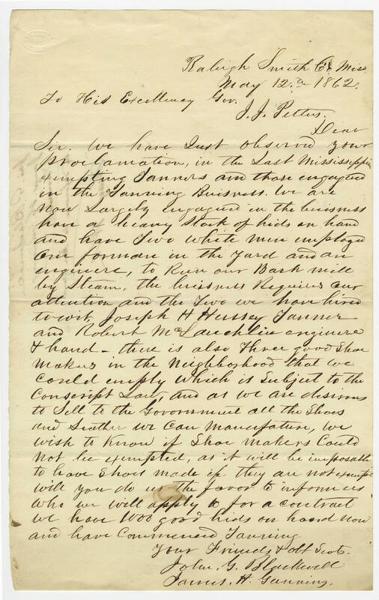 Raleigh Smith Co Miss
May 12th 1862.
To His Excellency Gov.
J. J. Pettus,
Dear
Sir. We have Just observed your
Proclamation, in the Last Mississippian
exempting Tanners and those engaged
in the Tanning Buisness. We are
now Largely engaged in the buisness
have a heavy Stock of hids on hand
and have Two White men employed
one forman in the Yard and an
engineere, to Run our Bark mill
by Steam, the buisness Requires our
attention and the Two we have hired
to wit, Joseph H Hussey Tanner
and Robert McLauchlin engineere
& hand - there is also Three good Shoe
makers in the Neighborhood that we
could employ which is Subject to the
Conscript Law, and as we are desirous
to Sell to the Government all the Shoes
and Leather we Can Manufature, we
wish to know if Shoe makers Could
not be exempted, as it will be imposable
to have Shoes made if they are not exempt
will you do us the favor to inform us
who we will apply to for a contract
we have 1000 good hids on hand now
and have Commenced Tanning
Your Friends & Obt Servts.
John G. Blackwell
James H. Gunning